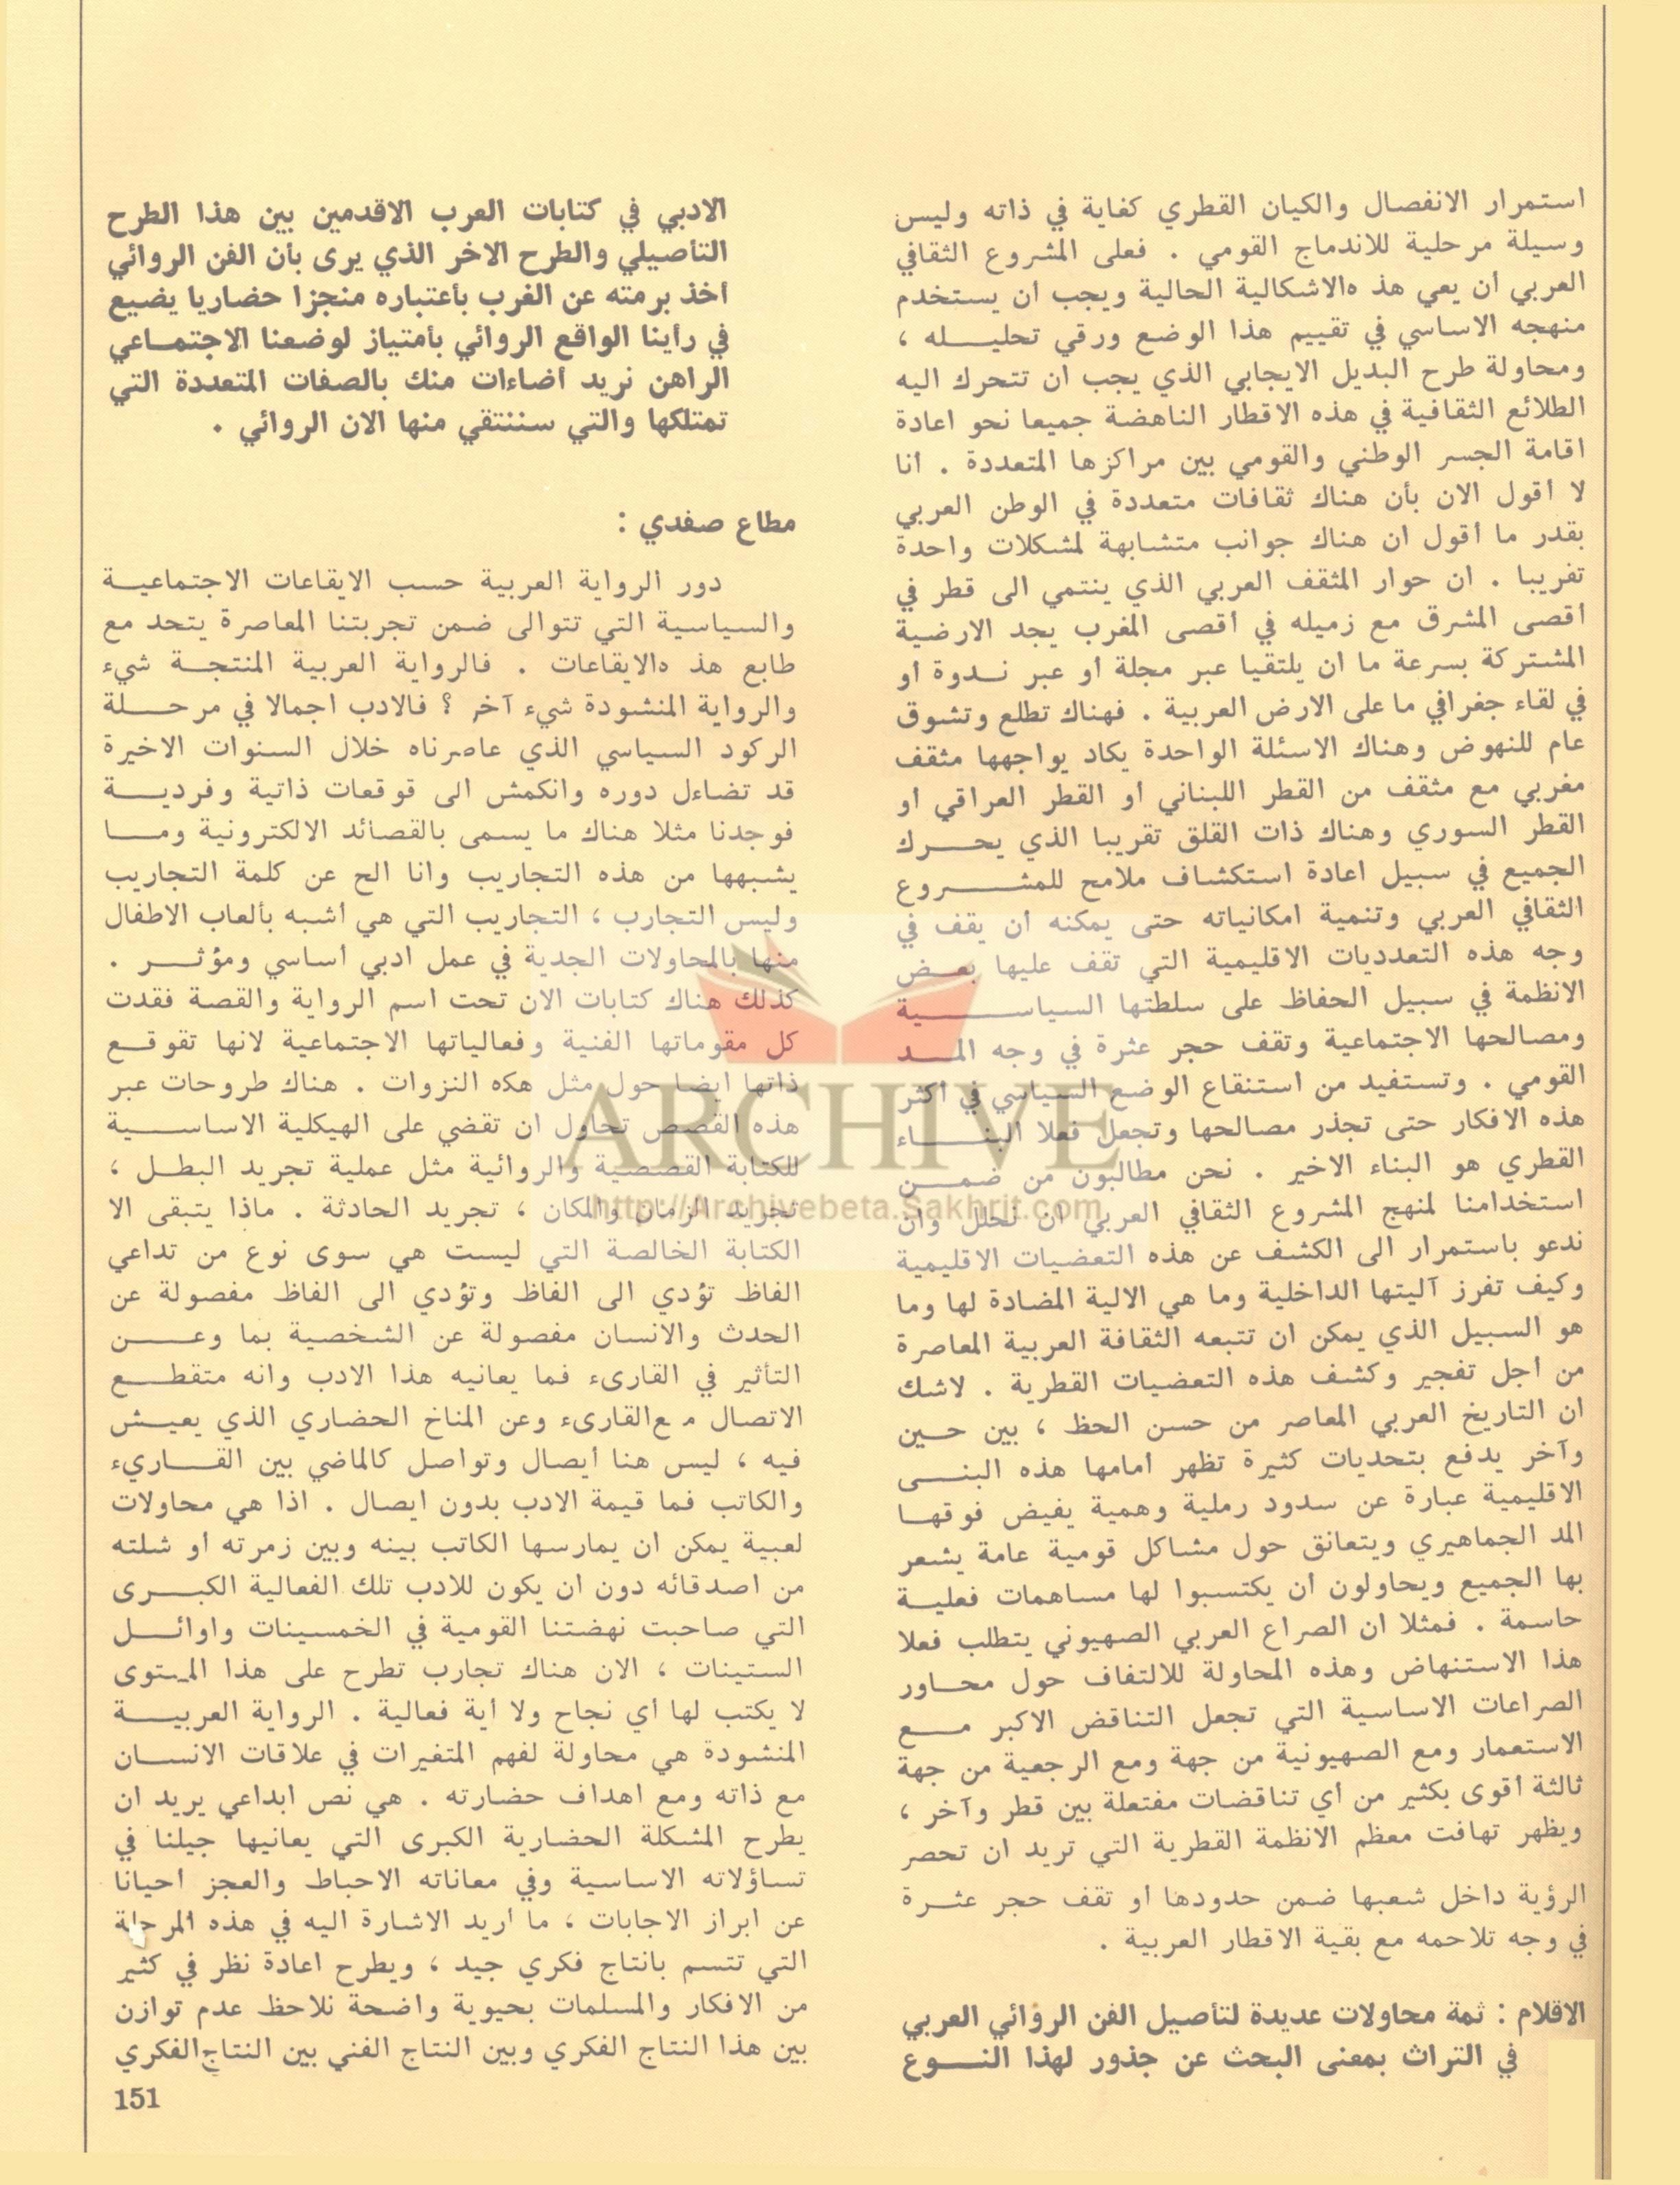 استمرار الانفصال والكيان القطري كغاية في ذاته وليس
وسيلة مرحلية للاندماج القومي . فعلى المشروع الثقافي
العربي أن يعي هذ ه‍الاشكالية الحالية ويجب أن يستخدم
منهجه الاساسي في تقييم هذا الوضع ورقي تحليله ،
ومحاولة طرح البديل الايجابي الذي يجب ان تتحرك اليه
الطلائع الثقافية في هذه الاقطار الناهضة جميعا نحو اعادة
اقامة الجسر الوطني والقومي بين مراكزها المتعددة . أنا
لا أقول الان بأن هناك ثقافات متعددة في الوطن العربي
بقدر ما أقول ان هناك جوانب متشابهة لمشكلات واحدة
تقريبا . ان حوار المثقف العربي الذي ينتمي الى قطر في
أقصى المشرق مع زميله في أقصى المغرب يجد الارضية
المشتركة بسرعة ما ان يلتقيا عبر مجلة أو عبر ندوة أو
في لقاء جغرافي ما على الارض العربية . فهناك تطلع وتشوق
عام للنهوض وهناك الاسئلة الواحدة يكاد يواجهها مثقف
مغربي مع مثقف من القطر اللبناني أو القطر العراقي أو
القطر السوري وهناك ذات القلق تقريبا الذي يحرك
الجميع في سبيل اعادة استكشاف ملامح للمشروع
الثقافي العربي وتنمية امكانياته حتى يمكنه أن يقف في
وجه هذه التعدديات الاقليمية التي تقف عليها بعض
الانظمة في سبيل الحفاظ على سلطتها السياسية
ومصالحها الاجتماعية وتقف حجر عثرة في وجه المد
القومي . وتستفيد من استنقاع الوضع السياسي في أكثر
هذه الافكار حتى تجذر مصالحها وتجعل فعلا البناء
القطري هو البناء الاخير . نحن مطالبون من ضمن
استخدامنا لمنهج المشروع الثقافي العربي ان نحلل وان
ندعو باستمرار الى الكشف عن هذه التعضيات الاقليمية
وكيف تفرز آليتها الداخلية وما هي الالية المضادة لها وما
هو السبيل الذي يمكن ان تتبعه الثقافة العربية المعاصرة
من أجل تفجير وكشف هذه التعضيات القطرية . لاشك
ان التاريخ العربي المعاصر من حسن الحظ ، بين حين
وآخر يدفع بتحديات كثيرة تظهر أمامها هذه البنى
الاقليمية عبارة عن سدود رملية وهمية يفيض فوقها
المد الجماهيري ويتعانق حول مشاكل قومية عامة يشعر
بها الجميع ويحاولون أن يكتسبوا لها مساهمات فعلية
حاسمة . فمثلا ان الصراع العربي الصهيوني يتطلب فعلا
هذا الاستنهاض وهذه المحاولة للالتفاف حول محاور
الصراعات الاساسية التي تجعل التناقض الاكبر مع
الاستعمار ومع الصهيونية من جهة ومع الرجعية من جهة
ثالثة أقوى بكثير من أي تناقضات مفتعلة بين قطر وآخر ،
ويظهر تهافت معظم الانظمة القطرية التي تريد ان تحصر
الرؤية داخل شعبها ضمن حدودها أو تقف حجر عثرة
في وجه تلاحمه مع بقية الاقطار العربية .
الاقلام : ثمة محاولات عديدة لتأصيل الفن الروائي العربي
في التراث بمعنى البحث عن جذور لهذا النوع
الادبي في كتابات العرب الاقدمين بين هذا الطرح
التأصيلي والطرح الاخر الذي يرى بأن الفن الروائي
أخذ برمته عن الغرب بأعتباره منجزا حضاريا يضيع
في رأينا الواقع الروائي بأمتياز لوضعنا الاجتماعي
الراهن نريد أضاءات منك بالصفات المتعددة التي
تمتلكها والتي سننتقي منها الان الروائي .
مطاع صفدي :
دور الرواية العربية حسب الايقاعات الاجتماعية
والسياسية التي تتوالى ضمن تجربتنا المعاصرة يتحد مع
طابع هذ ه‍الايقاعات . فالرواية العربية المنتجة شيء
والرواية المنشودة شيء آخر ؟ فالادب اجمالا في مرحلة
الركود السياسي الذي عاصرناه خلال السنوات الاخيرة
قد تضاءل دوره وانكمش الى قوقعات ذاتية وفردية
فوجدنا مثلا هناك ما يسمى بالقصائد الالكترونية وما
يشبهها من هذه التجاريب وانا الح عن كلمة التجاريب
وليس التجارب ، التجاريب التي هي أشبه بألعاب الاطفال
منها بالمحاولات الجدية في عمل ادبي أساسي ومؤثر .
كذلك هناك كتابات الان تحت اسم الرواية والقصة فقدت
كل مقوماتها الفنية وفعالياتها الاجتماعية لانها تقوقع
ذاتها ايضا حول مثل هكه النزوات . هناك طروحات عبر
هذه القصص تحاول ان تقضي على الهيكلية الاساسية
للكتابة القصصية والروائية مثل عملية تجريد البطل ،
تجريد الزمان والمكان ، تجريد الحادثة . ماذا يتبقى الا
الكتابة الخالصة التي ليست هي سوى نوع من تداعي
الفاظ تؤدي الى الفاظ وتؤدي الى الفاظ مفصولة عن
الحدث والانسان مفصولة عن الشخصية بما وعن
التأثير في القارىء فما يعانيه هذا الادب وانه متقطع
الاتصال م ع‍القارىء وعن المناخ الحضاري الذي يعيش
فيه ، ليس هنا أيصال وتواصل كالماضي بين القاريء
والكاتب فما قيمة الادب بدون ايصال . اذا هي محاولات
لعبية يمكن ان يمارسها الكاتب بينه وبين زمرته أو شلته
من اصدقائه دون ان يكون للادب تلك الفعالية الكبرى
التي صاحبت نهضتنا القومية في الخمسينات واوائل
الستينات ، الان هناك تجارب تطرح على هذا المستوى
لا يكتب لها أي نجاح ولا أية فعالية . الرواية العربية
المنشودة هي محاولة لفهم المتغيرات في علاقات الانسان
مع ذاته ومع اهداف حضارته . هي نص ابداعي يريد ان
يطرح المشكلة الحضارية الكبرى التي يعانيها جيلنا في
تساؤلاته الاساسية وفي معاناته الاحباط والعجز احيانا
عن ابراز الاجابات ، ما أريد الاشارة اليه في هذه المرحلة
التي تتسم بانتاج فكري جيد ، ويطرح اعادة نظر في كثير
من الافكار والمسلمات بحيوية واضحة نلاحظ عدم توازن
بين هذا النتاج الفكري وبين النتاج الفني بين النتاج الفكري
151
ARCHIVE
http://Archivebeta.Sakhrit.com